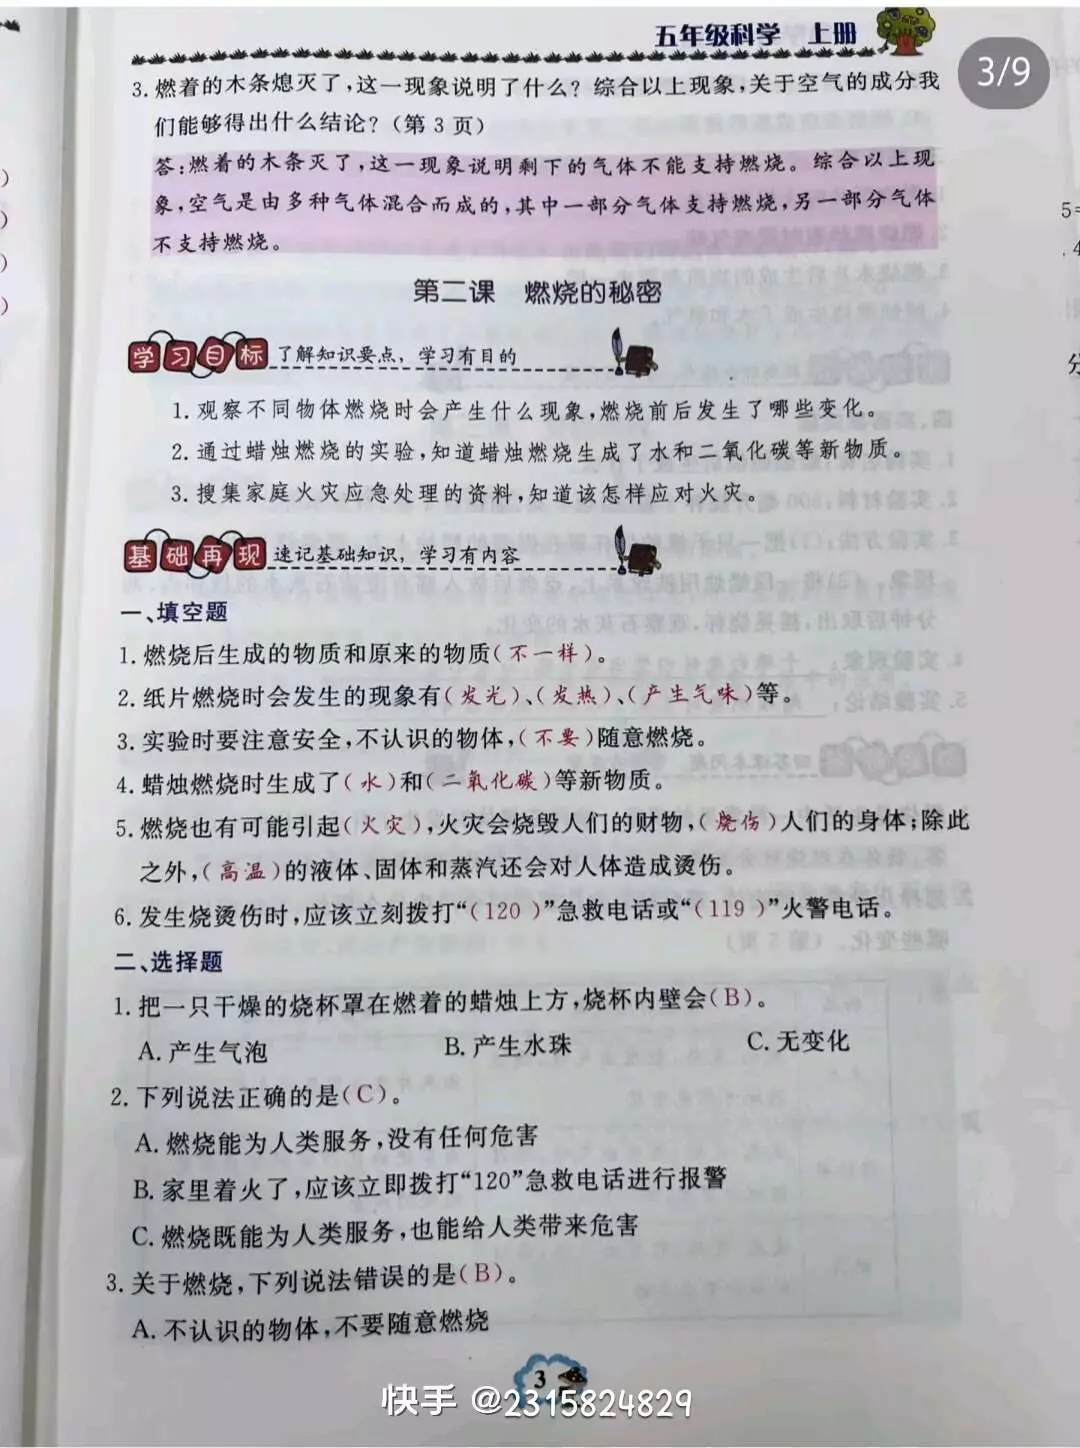 五年级科学 上册
3/9
3.燃着的木条熄灭了,这一现象说明了什么？综合以上现象,关于空气的成分我
们能够得出什么结论？(第3页)
答:燃着的木条灭了,这一现象说明剩下的气体不能支持燃烧。综合以上现
象,空气是由多种气体混合而成的,其中一部分气体支持燃烧,另一部分气体
不支持燃烧。
第二课 燃烧的秘密
学习目标 了解知识要点，学习有目的
1.观察不同物体燃烧时会产生什么现象,燃烧前后发生了哪些变化。
2.通过蜡烛燃烧的实验,知道蜡烛燃烧生成了水和二氧化碳等新物质。
3.搜集家庭火灾应急处理的资料,知道该怎样应对火灾。
基础再现 速记基础知识，学习有内容
一、填空题
1.燃烧后生成的物质和原来的物质(不一样)。
2.纸片燃烧时会发生的现象有(发光)、(发热)、(产生气味)等。
3.实验时要注意安全,不认识的物体,(不要)随意燃烧。
4.蜡烛燃烧时生成了(水)和(二氧化碳)等新物质。
5.燃烧也有可能引起(火灾),火灾会烧毁人们的财物,(烧伤)人们的身体;除此
之外,(高温)的液体、固体和蒸汽还会对人体造成烫伤。
6.发生烧烫伤时,应该立刻拨打“(120)”急救电话或“(119)”火警电话。
二、选择题
1.把一只干燥的烧杯罩在燃着的蜡烛上方,烧杯内壁会(B)。
A.产生气泡 B.产生水珠 C.无变化
2.下列说法正确的是(C)。
A.燃烧能为人类服务,没有任何危害
B.家里着火了,应该立即拨打“120”急救电话进行报警
C.燃烧既能为人类服务,也能给人类带来危害
3.关于燃烧,下列说法错误的是(B)。
A.不认识的物体,不要随意燃烧
3
快手 @2315824829